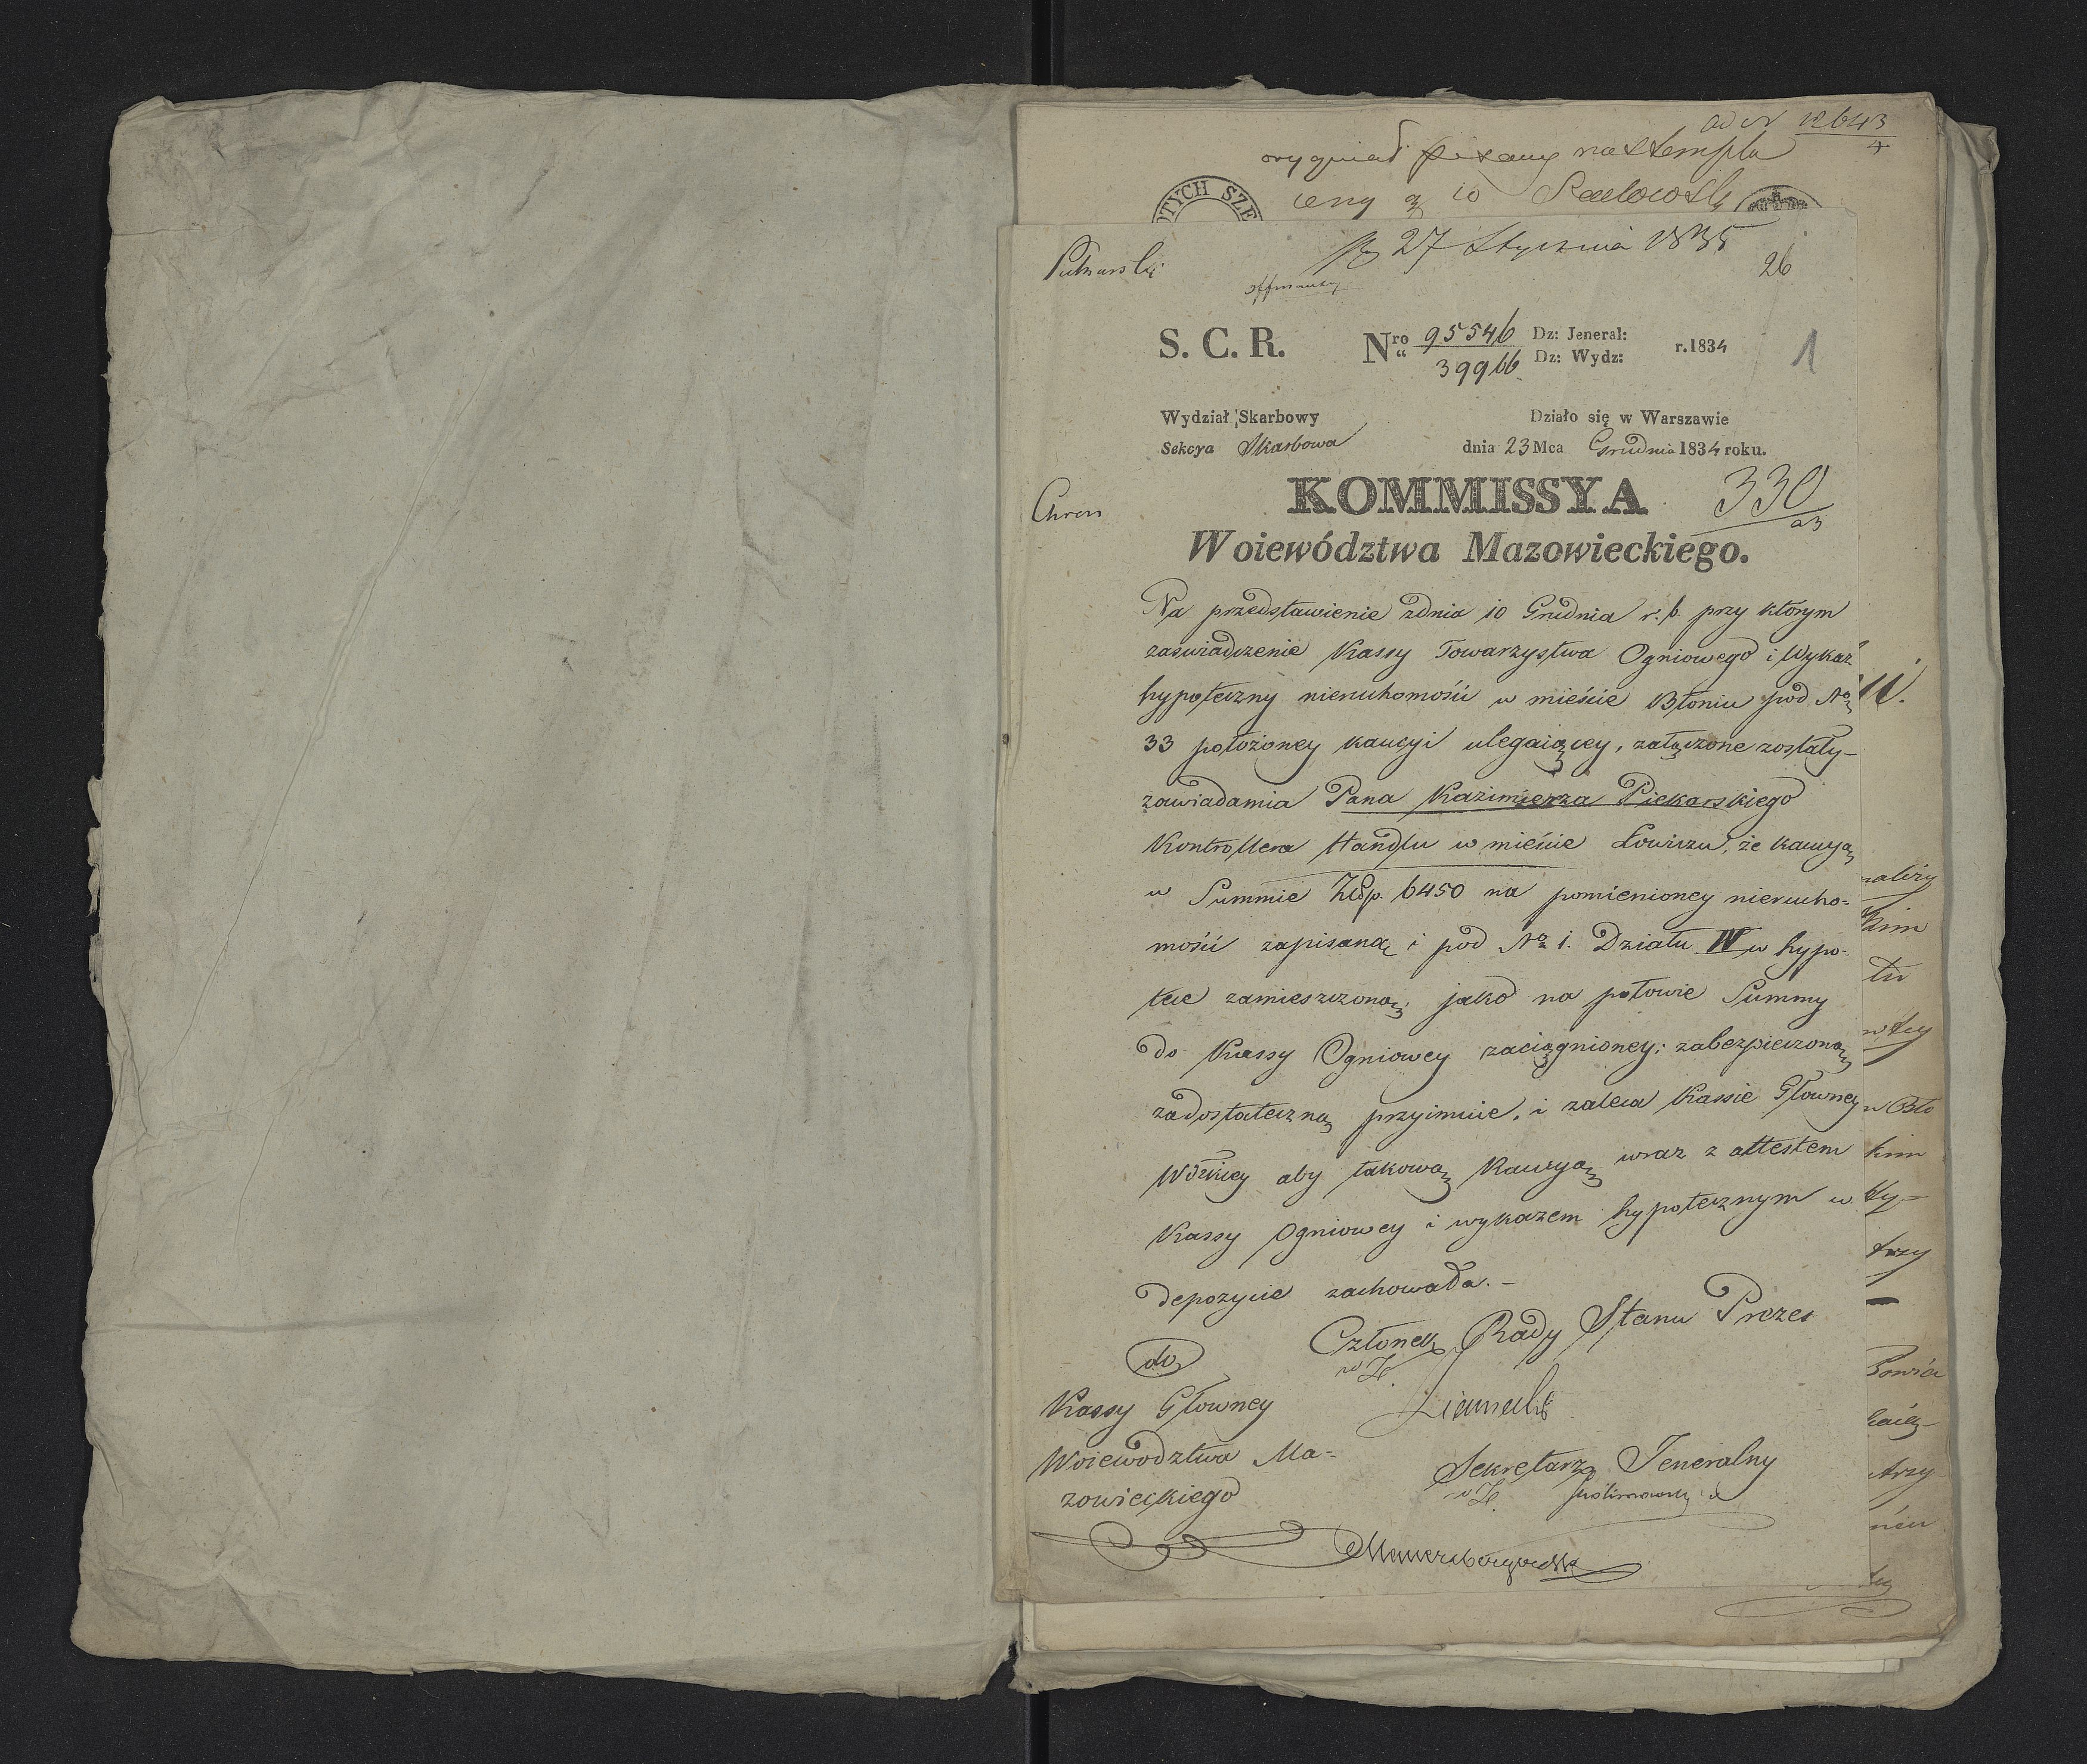 ad N 12643
4
orygniał pisany na stemplu
ceny zł 10 Radowski
OTYCH SZE
27 Stycznia 1835
26
S. C. R. Nro 95546 Dz: Jeneral: r. 1834
39966 Dz: Wydz:
1
Wydział Skarbowy Działo się w Warszawie
Sekcya Skarbowa dnia 23 Mca Grudnia 1834 roku.
KOMMISSYA
330
Woiewództwa Mazowieckiego.
Na przedstawienie zdnia 10 Grudnia r. b. przy którym
zaswiadczenie Kassy Towarzystwa Ogniowego i Wykaz
hypoteczny nieruchomości w mieście Błoniu pod No
33 położoney kaucyi ulegaiącey, załączone zostały–
zawiadamia Pana Kazimierza Piekarskiego
Kontrollera Handlu w mieście Łowiczu, że kaucyą
w Summie Złłp. 6450 na pomienioney nierucho-
mości zapisaną i pod No 1. Działu IV w hypo-
tece zamieszczoną; jako na połowie Summy
do Kassy Ogniowey zaciągnioney; zabezpieczoną
za dostateczną przyimuie, i zaleca Kassie Głowney
Wdzkiey aby takową Kaucyą wraz z attestem
Kassy Ogniowey i wykazem hypotecznym w
depozycie zachowała.–
Członek Rady Stanu Prezes
do
w Z.
Kassy Głowney
Woiewodztwa Ma-
zowieckiego
Sekretarz Jeneralny
w Z.